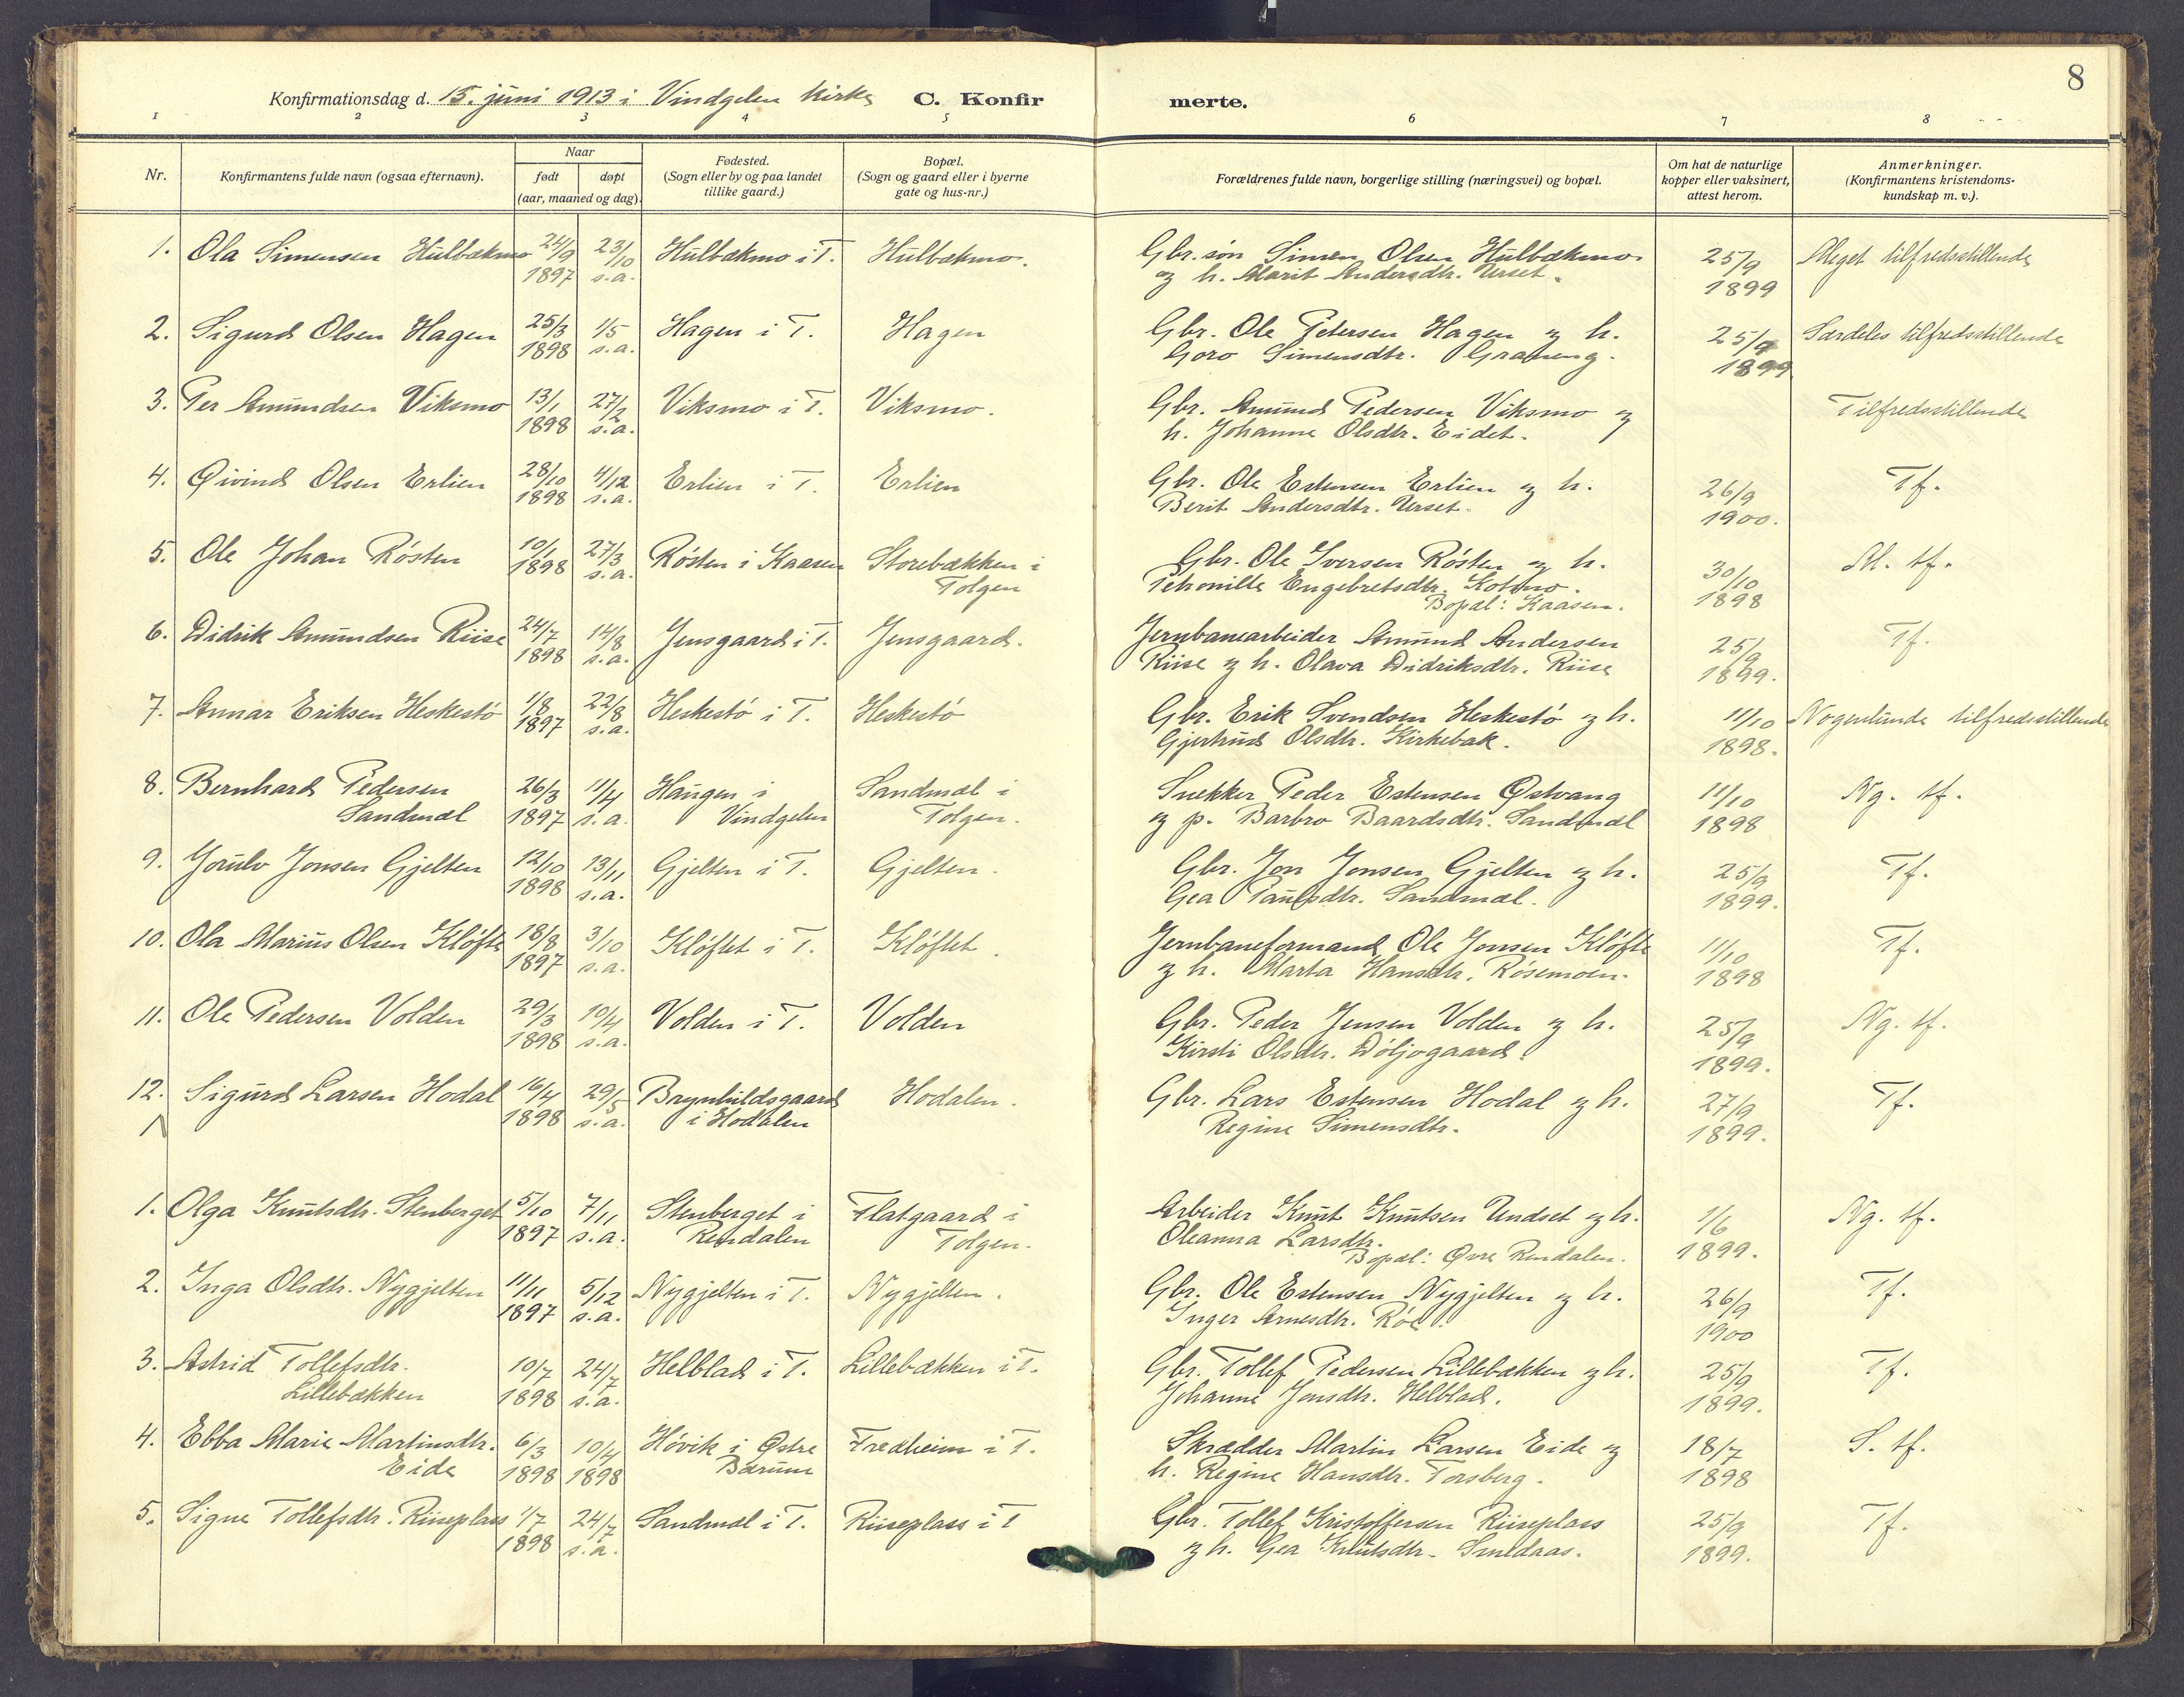 8
Konfirmationsdag d. 15. juni 1913 i Vindgelen kirke C. Konfirmerte.
1 2 3 4 5 6 7 8
Nr. Konfirmantens fulde navn (ogsaa efternavn). Naar født døpt (aar, maaned og dag). Fødested. (Sogn eller by og paa landet tillike gaard.) Bopæl. (Sogn og gaard eller i byerne gate og hus-nr.) Forældrenes fulde navn, borgerlige stilling (næringsvei) og bopæl. Om hat de naturlige kopper eller vaksinert, attest herom. Anmerkninger. (Konfirmantens kristendomskundskap m. v.).
1. Ola Simensen Hulbækmo 24/9 23/10 Hulbækmo i T. Hulbækmo. Gbr. søn Simen Olsen Hulbækmo 25/9 Meget tilfredsstillende
1897 s.a. og h. Marit Andersdtr. Urset. 1899
2. Sigurd Olsen Hagen 25/3 1/5 Hagen i T. Hagen Gbr. Ole Petersen Hagen og h. 25/9 Særdeles tilfredsstillende
1898 s.a. Goro Simensdtr. Grameng. 1899
3. Per Amundsen Viksmo 13/1 27/2 Viksmo i T. Viksmo. Gbr. Amund Pedersen Viksmo og Tilfredsstillende
1898 s.a. h. Johanne Olsdtr. Eidet.
4. Øivind Olsen Erlien 28/10 4/12 Erlien i T. Erlien Gbr. Ole Estensen Erlien og h. 26/9 Tf.
1898 s.a. Berit Andersdtr. Urset. 1900.
5. Ole Johan Røsten 10/1 27/3 Røsten i Kaasen Storebækken i Gbr. Ole Iversen Røsten og h. 30/10 M. tf.
1898 s.a. Tolgen Petronille Engebretsdtr. Kotmo. 1898
Bopæl: Kaasen.
6. Didrik Amundsen Riise 24/7 14/8 Jensgaard i T. Jensgaard. Jernbanearbeider Amund Andersen 25/9 Tf.
1898 s.a. Riise og h. Olava Didriksdtr. Riise 1899.
7. Annar Eriksen Heskestø 1/8 22/8 Heskestø i T. Heskestø Gbr. Erik Svendsen Heskestø og h. 11/10 Nogenlunde tilfredsstillende
1897 s.a. Gjertrud Olsdtr. Kirkebak. 1898.
8. Bernhard Pedersen 26/3 11/4 Haugen i Sandmæl i Snekker Peder Estensen Østvang 11/10 Ng. tf.
Sandmæl 1897 s.a. Vindgelen Tolgen. og p. Barbro Baardsdtr. Sandmæl 1898
9. Jorulv Jonsen Gjelten 12/10 13/11 Gjelten i T. Gjelten. Gbr. Jon Jonsen Gjelten og h. 25/9 Tf.
1898 s.a. Gea Paulsdtr. Sandmæl. 1899.
10. Ola Marius Olsen Kløfte 18/8 3/10 Kløftet i T. Kløftet. Jernbaneformand Ole Jonsen Kløfte 11/10 Tf.
1897 s.a. og h. Marta Hansdtr. Røsemoen. 1898
11. Ole Pedersen Volden 29/3 10/4 Volden i T. Volden Gbr. Peder Jensen Volden og h. 25/9 Ng. tf.
1898 s.a. Kirsti Olsdtr. Døljogaard. 1899.
12. Sigurd Larsen Hodal 16/4 29/5 Brynhildsgaard Hodalen. Gbr. Lars Estensen Hodal og h. 27/9 Tf.
1898 s.a. i Hodalen Regine Simensdtr. 1899.
1. Olga Knutsdtr. Stenberget 5/10 7/11 Stenberget i Flatgaard i Arbeider Knut Knutsen Undset og h. 1/6 Ng. tf.
1897 s.a. Rendalen Tolgen. Oleanna Larsdtr. 1899.
Bopæl: Øvre Rendalen.
2. Inga Olsdtr. Nygjelten 11/11 5/12 Nygjelten i T. Nygjelten. Gbr. Ole Estensen Nygjelten og h. 26/9 Tf.
1897 s.a. Inger Arnesdtr. Røe. 1900
3. Astrid Tollefsdtr. 10/7 24/7 Helblad i T. Lillebækken i T. Gbr. Tollef Pedersen Lillebækken og h. 25/9 Tf.
Lillebækken 1898 s.a. Johanne Jonsdtr. Helblad. 1899.
4. Ebba Marie Martinsdtr. 6/3 10/4 Høvik i Østre Fredheim i T. Skrædder Martin Larsen Eide og 18/7 S. tf.
Eide 1898 1898 Bærum h. Regine Hansdtr. Torsberg. 1898
5. Signe Tollefsdtr. Riiseplass 1/7 24/7 Sandmæl i T. Riiseplass i T Gbr. Tollef Kristoffersen Riiseplass 25/9 Tf.
1898 s.a. og h. Gea Knutsdtr. Smedaas. 1899.